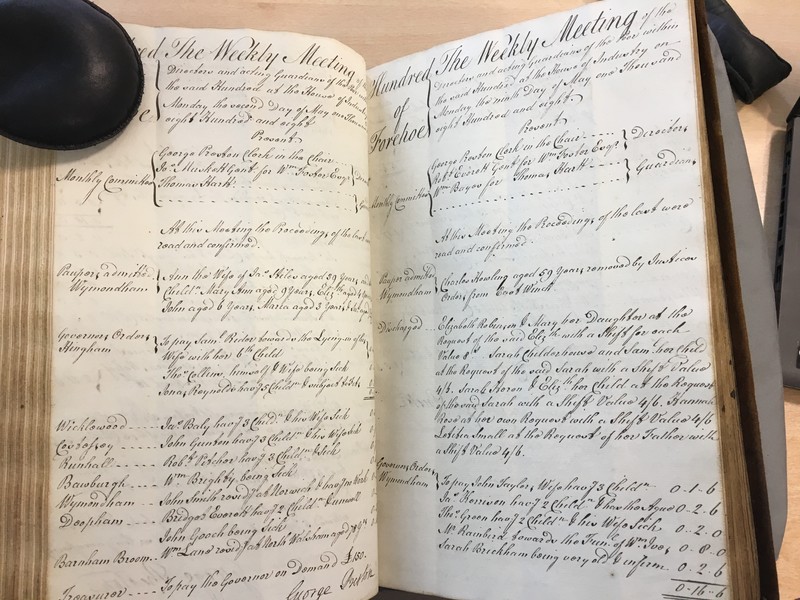 red The Weekly Meeting of the
Directors and acting Guardians of the
the said Hundred at the House of Indus
Monday the second Day of May one Thou
eight Hundred and eight
Present
George Preston Clerk in the Chair
Monthly Committee
Jas. Muskett Gent for Wm Foster Esqr
Thomas Hart
At this Meeting the Proceedings of the last
read and confirmed.
Paupers admitted
Wymondham
Ann the Wife of Jas. Stiles aged 39 Years and
Childn Mary Ann aged 9 Years, Elizth aged
John aged 6 Years, Maria aged 3 Years
Governors Orders
Hingham
To pay Saml Reder towards the Lying in of his
Wife with her 6th Child
Thos. Collen himself & Wife being Sick
Jonas Reynolds havg 5 Childn
Wicklewood Jas. Baly havg 3 Childn & his Wife Sick
Cossey John Gunton havg 3 Childn & his Wife Sick
Runhall Robt. Pitcher havg 3 Childn & Sick
Bawburgh Wm Brighty being Sick
Wymondham John Smith residg at Norwich & havg
Deopham Bridget Everett havg 2 Childn & unwell
John Gooch being Sick
Barnham Broom Wm Land residg at North Walsham aged 79 Ys
Treasurer To pay the Governor on Demand £150.
George Preston
Hundred
of
Forehoe
The Weekly Meeting of the
Directors and acting Guardians of the Poor within
the said Hundred at the House of Industry on
Monday the ninth Day of May one Thousand
eight Hundred and eight
Present
George Preston Clerk in the Chair
Monthly Committee
Robt. Everett Gent for Wm Foster Esqr
Directors
Wm Bayes for Thomas Hart
Guardians
At this Meeting the Proceedings of the last were
read and confirmed.
Pauper admitted
Wymondham
Charles Howling aged 59 Years removed by Justices
Order from East Winch
Discharged Elizabeth Robinson & Mary her Daughter at the
Request of the said Elizth with a Shift for each
Value 8s. Sarah Childerhouse and Saml her Child
at the Request of the said Sarah with a Shift Value
4/6. Sarah Heron & Elizth her Child at the Request
of the said Sarah with a Shift Value 4/6 Hannah
Reed at her own Request with a Shift Value 4/6
Letitia Small at the Request of her Father with
a Shift Value 4/6.
Governors Orders
Wymondham
To pay John Taylors Wife havg 3 Childn 0-1-6
Jas. Kerrison havg 2 Childn & has the Ague 0-2-6
Thos. Green havg 2 Childn & his Wife Sick 0-2-0
Mr Rambird towards the Funl. of Wm Ives 0-8-0
Sarah Brickham being very old & infirm 0-2-6
0-16-6